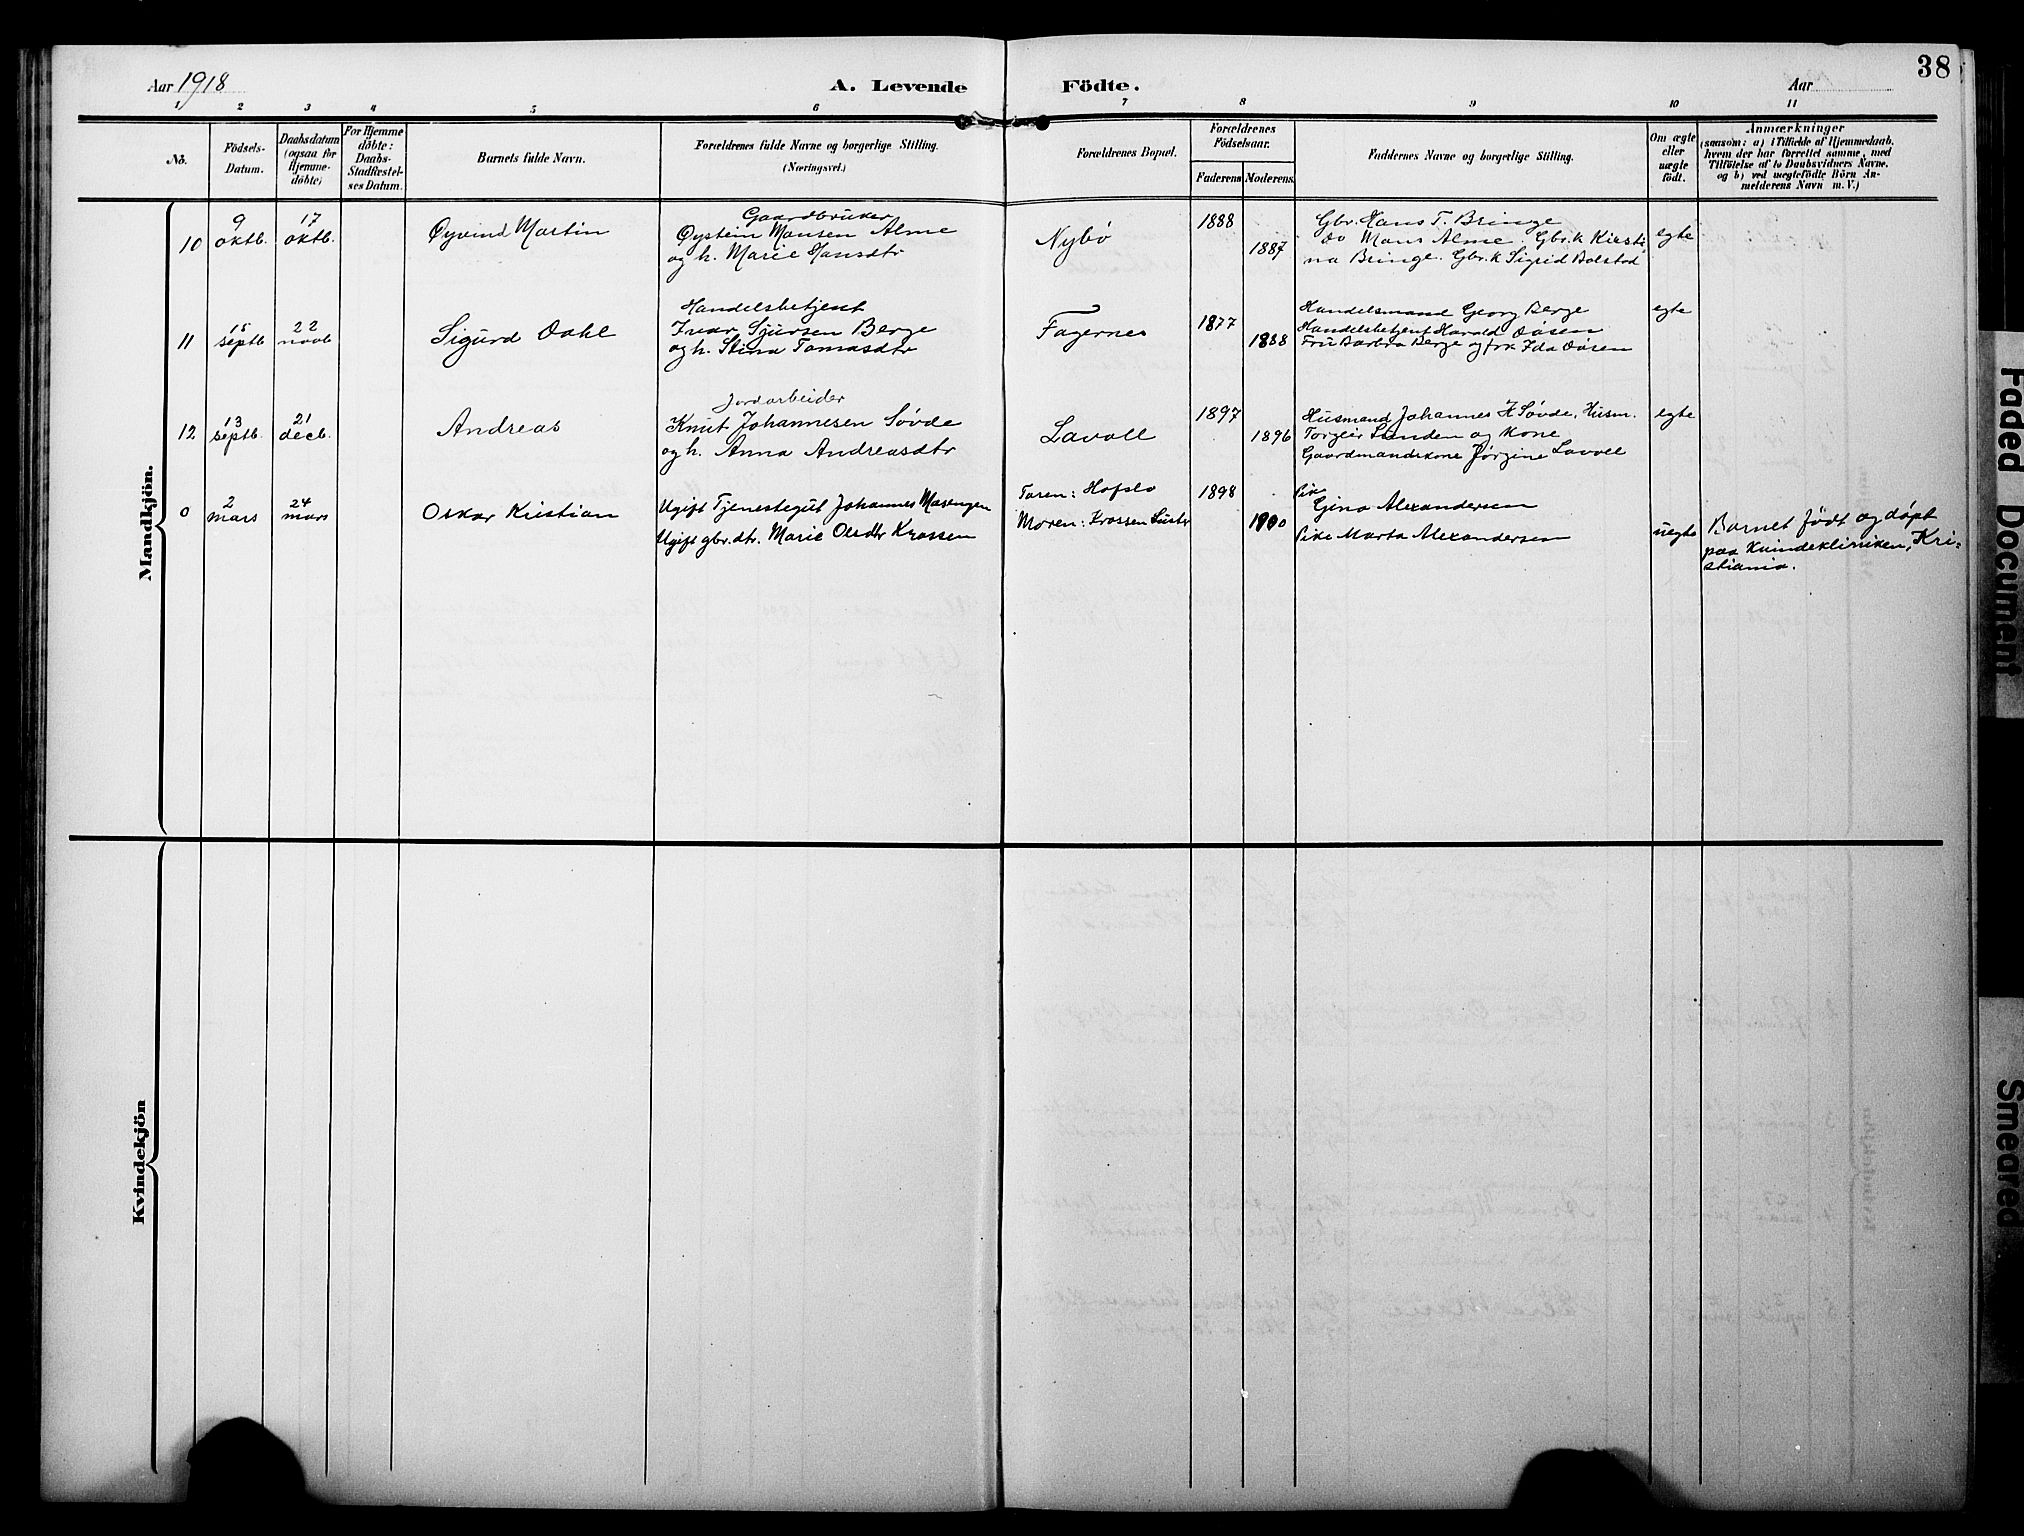 38
Aar 1918
A. Levende Födte.
Aar
1 2 3 4 5 6 7 8 9 10 11
No.
Födsels-Datum.
Daabsdatum (ogsaa for Hjemme-döbte)
For Hjemme döbte: Daabs-Stadfæstel-ses Datum.
Barnets fulde Navn.
Forældrenes fulde Navne og borgerlige Stilling. (Næringsvei.)
Forældrenes Bopæl.
Forældrenes Födselsaar.
Faderens Moderens.
Faddernes Navne og borgerlige Stilling.
Om ægte eller uægte födt.
Anmærkninger
(saasom: a) i Tilfælde af Hjemmedaab,
hvem der har forrettet samme, med
Tilföielse af to Daabsvidners Navne.
og b) ved uægtefödte Börn An-
melderens Navn m. V.)
Mandkjön.
10
9 oktb.
17 oktb.
Øyvind Martin
Gaardbruker
Øystein Monsen Alme
og h. Marie Hansdtr
Nybø
1888
1887
Gbr. Hans T. Bringe
do Mons Alme. Gbr.k Kirsti
na Bringe. Gbr.k Sigrid Bolstad
egte
11
15 septb
22 novb
Sigurd Dahl
Handelsbetjent
Ivar Sjursen Berge
og h. Stina Tomasdtr
Fagernes
1877
1888
Handelsmand Georg Berge
Handelsbetjent Harald Døsen
Fru Barbra Berge og frk Ida Døsen
egte
12
13 septb.
21 decb.
Andreas
Jordarbeider
Knut Johannesen Søvde
og h. Anna Andreasdtr
Lavoll
1897
1896
Husmand Johannes K Søvde, Husm.
Torgeir Lunden og Kone
Gaardmandskone Jørgine Lavoll
egte
0
2 mars
24 mars
Oskar Kristian
Ugift Tjenestegut Johannes Moengen
Ugift gbr.dtr. Marie Olsdtr Krossen
Faren: Hafslo
Moren: Krossen Luster
1898
1900
Pike
Gina Alexandersen
Pike Marta Alexandersen
uegte
Barnet født og døpt
paa Kvindeklinniken, Kri-
stiania.
Kvindekjön
Faded Document
Smeared